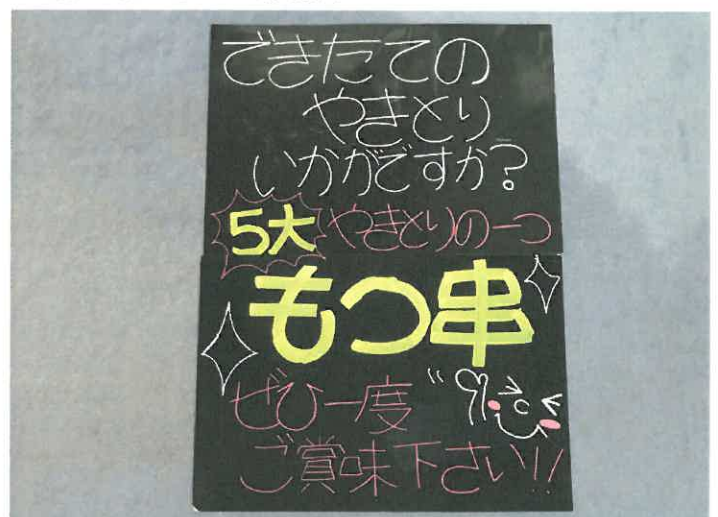 できたての
やきとり
いかがですか?
5大やきとりの一つ
もつ串
ぜひ一度
ご賞味下さい!!